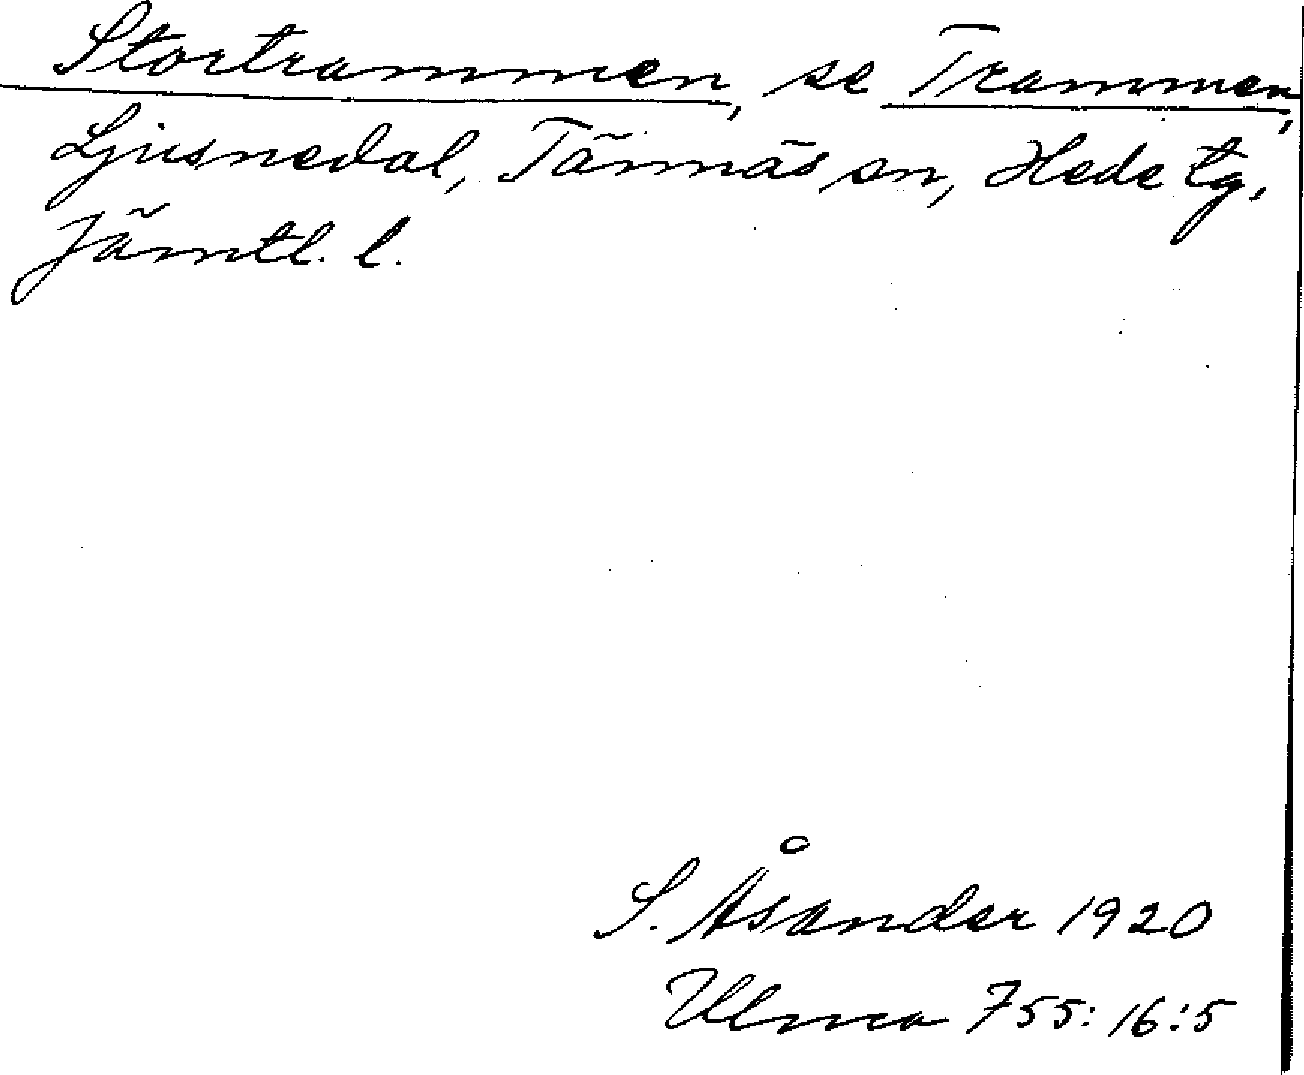 Stortrammen, se Trammen,
Ljusnedal, Tännäs sn, Hede tg.
Jämtl. l.
S. Åsander 1920
Ulma 755:16:5